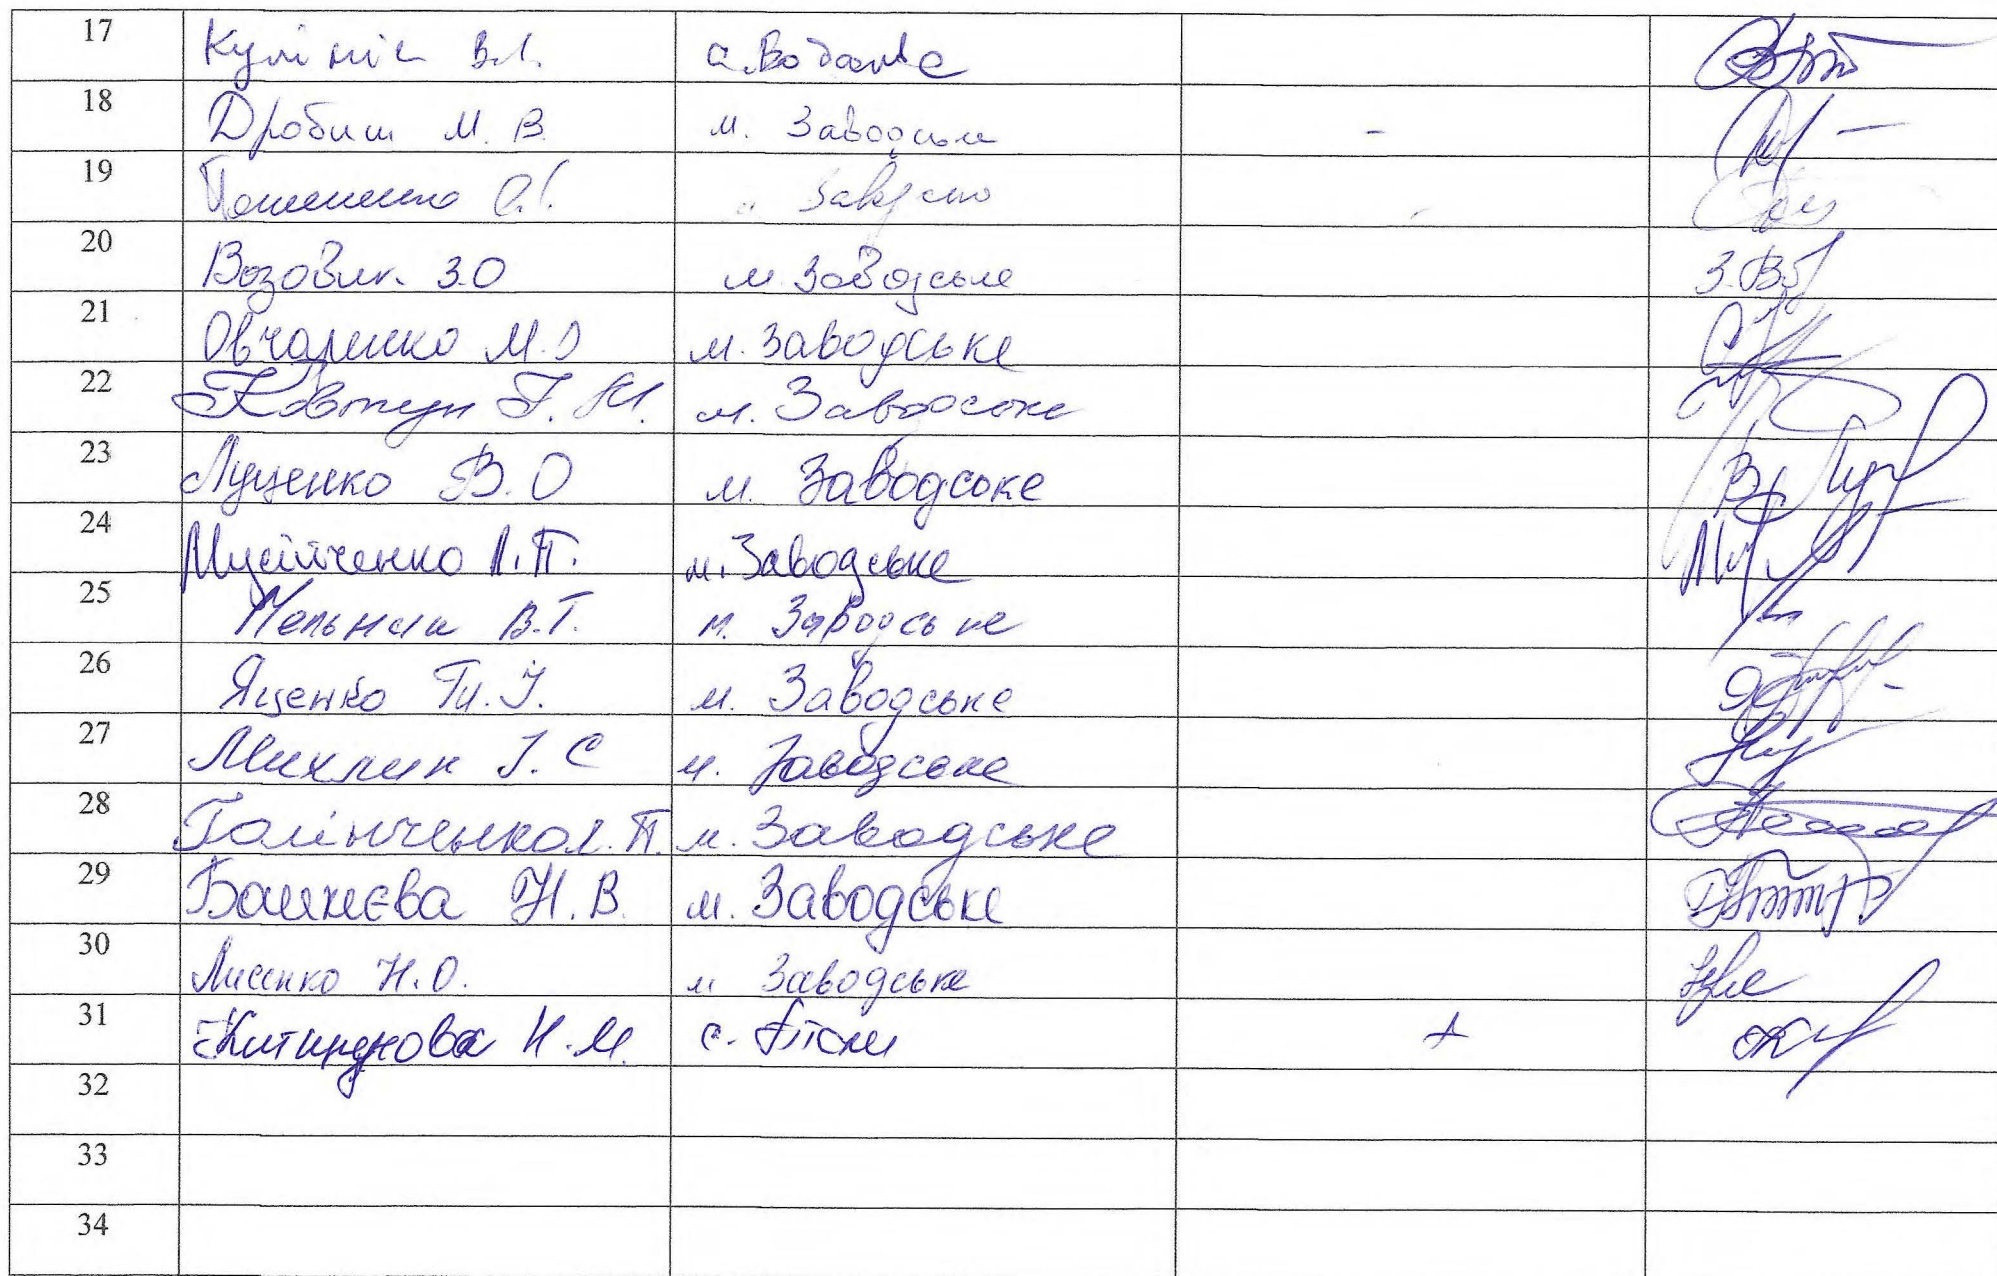 17 Кулініч В.І. с. Водяне
18 Дробиш М. В. м. Заводське -
19
20 Возовик З.О м. Заводське З.В
21 Овчаренко М.І м. Заводське
22 Ковтун Г. М. м. Заводське
23 Луценко В.О м. Заводське
24 Мусійченко Л.П. м. Заводське
25 Мельник В.Т. м. Заводське
26 Яценко Т.І. м. Заводське
27 Михлик І. С м. Заводське
28 Галінченко Л. П. м. Заводське
29 Н. В. м. Заводське
30 Лисенко Н.О. м Заводське
31 Н.М. с. +
32
33
34